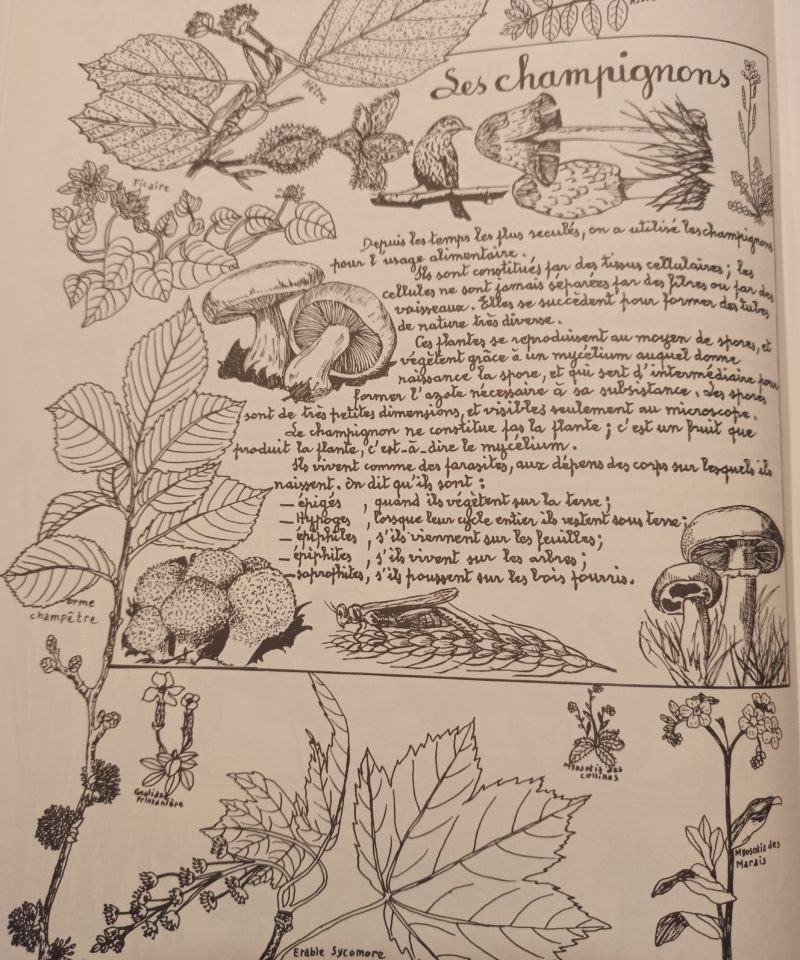 Hêtre
Les champignons
Ficaire
Depuis les temps les plus reculés, on a utilisé les champignons
pour l'usage alimentaire.
Ils sont constitués par des tissus cellulaires ; les
cellules ne sont jamais séparées par des fibres ou par des
vaisseaux. Elles se succèdent pour former des tubes
de nature très diverse.
Ces plantes se reproduisent au moyen de spores, et
végètent grâce à un mycélium auquel donne
naissance la spore, et qui sert d'intermédiaire pour
former l'azote nécessaire à sa subsistance. Les spores
sont de très petites dimensions, et visibles seulement au microscope.
Le champignon ne constitue pas la plante ; c'est un fruit que
produit la plante, c'est-à-dire le mycélium.
Ils vivent comme des parasites, aux dépens des corps sur lesquels ils
naissent. On dit qu'ils sont :
– épigés , quand ils végètent sur la terre ;
– Hypogés , lorsque leur cycle entier ils restent sous terre ;
– épiphiles , s'ils viennent sur les feuilles ;
– épiphites , s'ils vivent sur les arbres ;
– saprophites, s'ils poussent sur les bois pourris.
orme
champêtre
Gentiane
Printanière
Myosotis des
collines
Myosotis des
Marais
Erable Sycomore